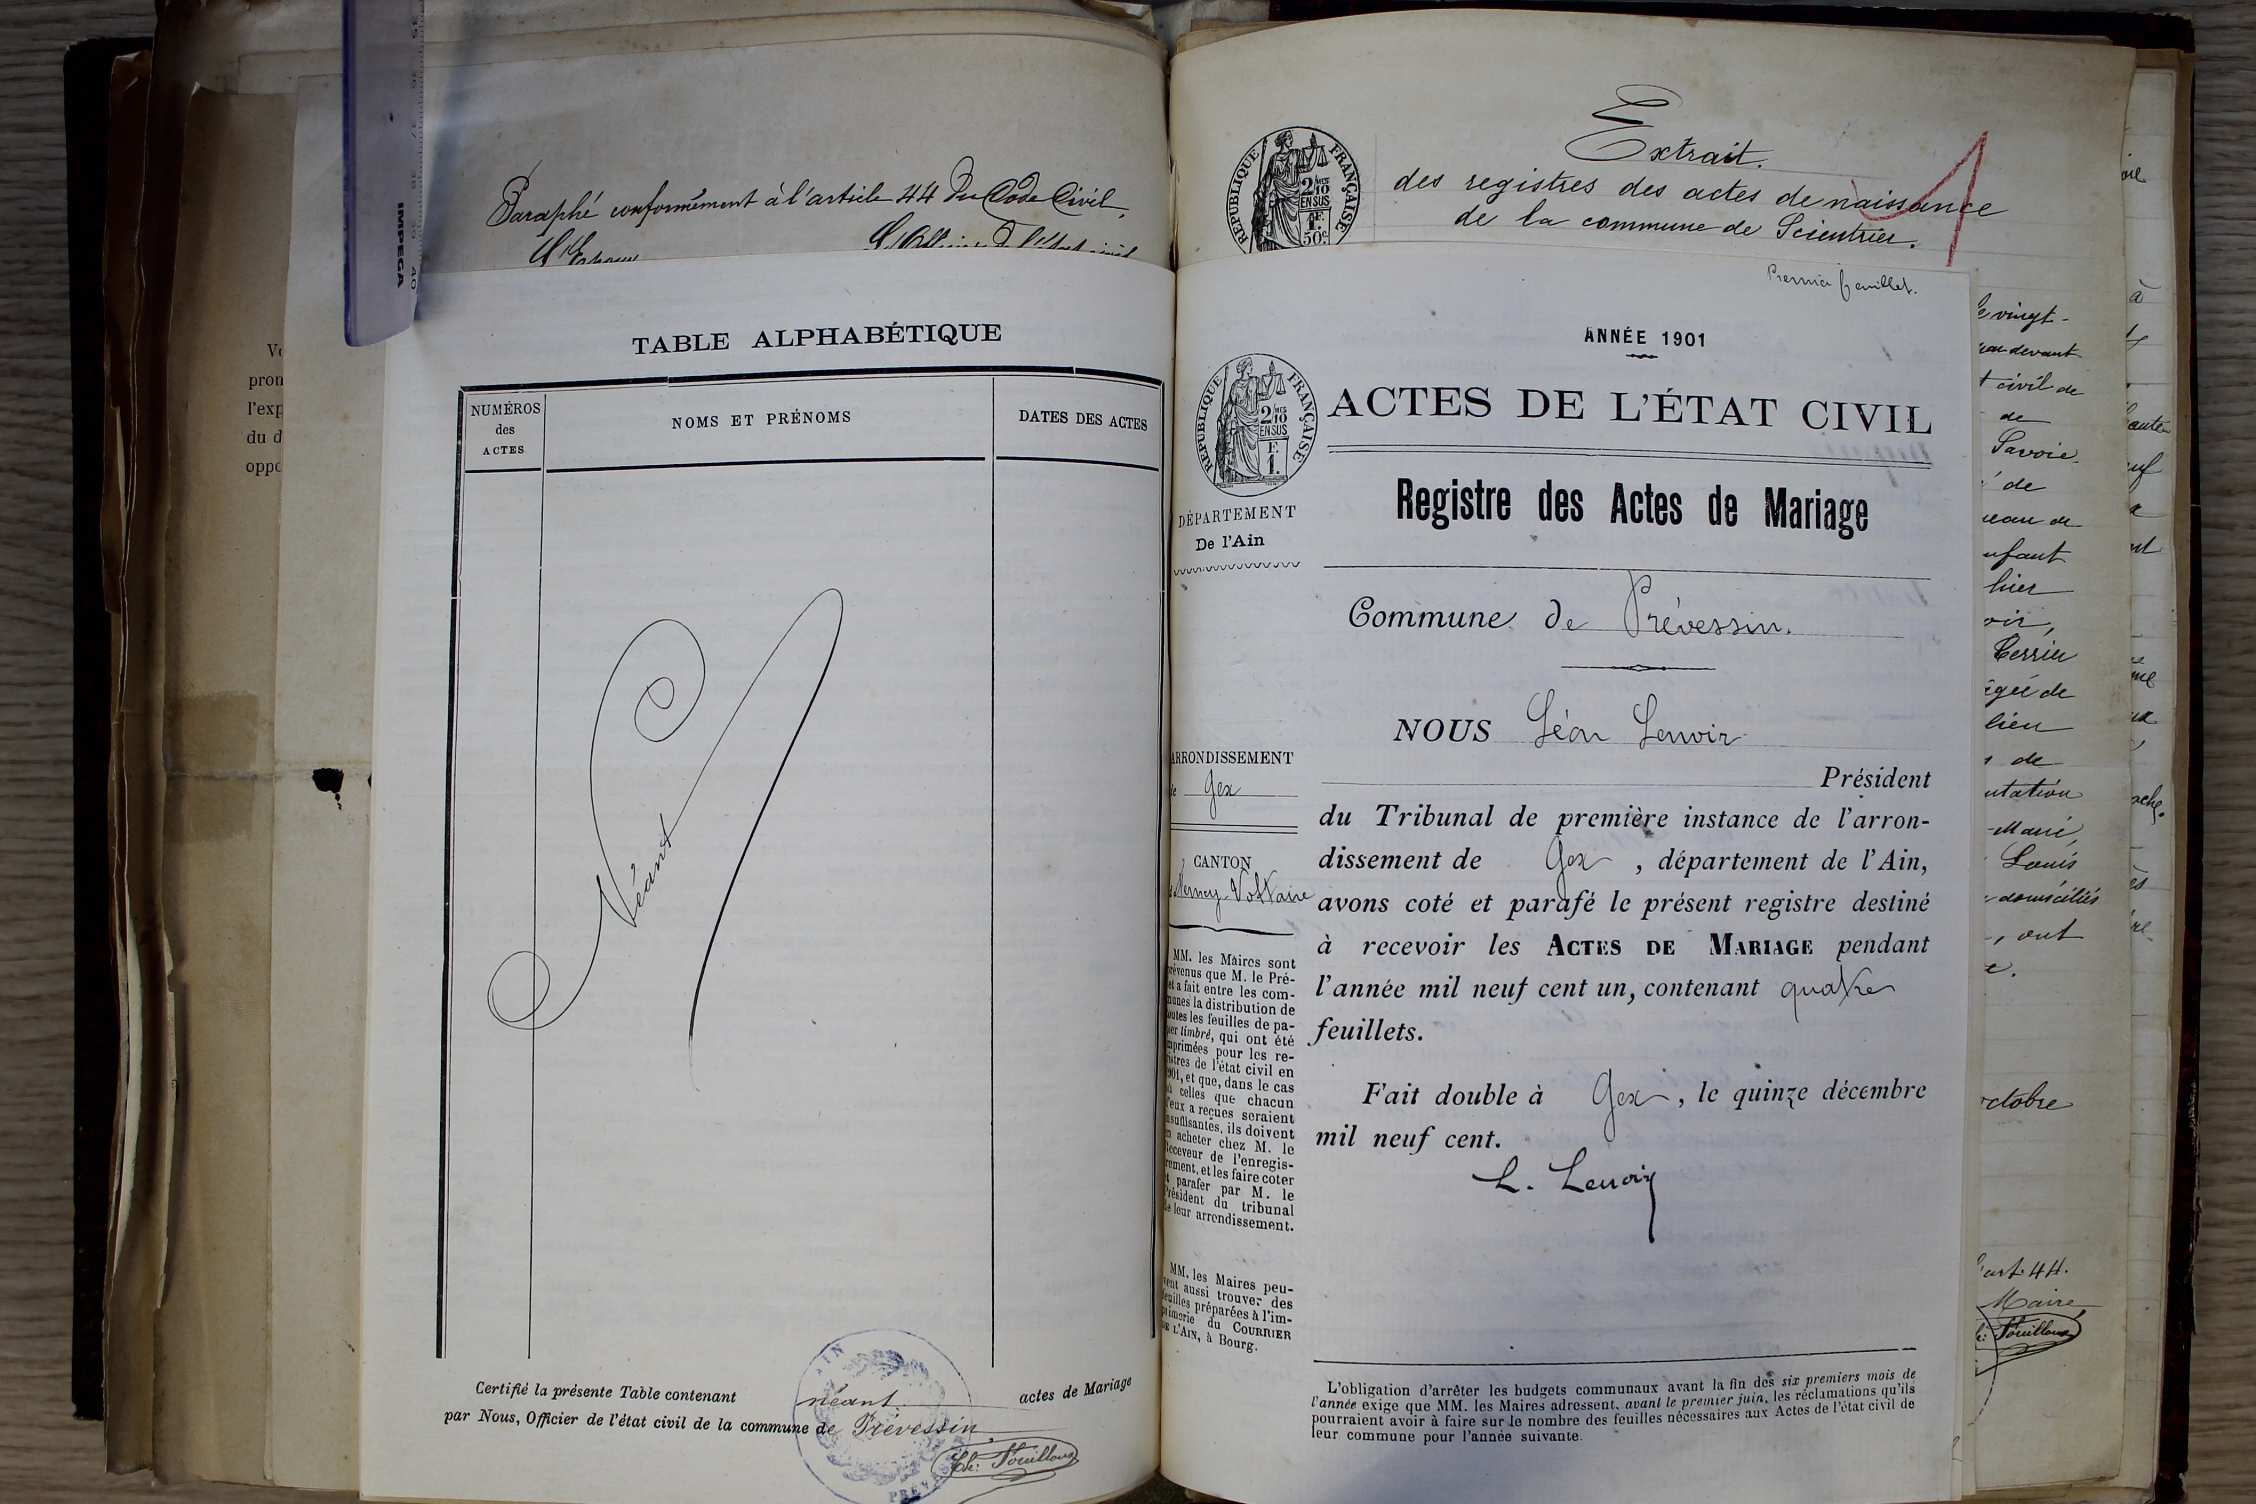 Paraphé conformément à l'article 44 du Code Civil,
TABLE ALPHABÉTIQUE
NUMÉROS
des
ACTES
NOMS ET PRÉNOMS
DATES DES ACTES
Néant
Certifié la présente Table contenant néant actes de Mariage
par Nous, Officier de l'état civil de la commune de Prévessin
AIN
IMPEGA
pron
l'exp
du d
oppo
Extrait
des registres des actes de naissance
de la commune de Scientrier.
RÉPUBLIQUE FRANÇAISE
2/10 MES
EN SUS
1F.
50c
Premier feuillet.
ANNÉE 1901
ACTES DE L'ÉTAT CIVIL
RÉPUBLIQUE FRANÇAISE
2/10 MES
EN SUS
F.
1.
DÉPARTEMENT
De l'Ain
Registre des Actes de Mariage
Commune de Prévessin.
NOUS Léon Lenoir
Président
du Tribunal de première instance de l'arron-
dissement de Gex, département de l'Ain,
avons coté et parafé le présent registre destiné
à recevoir les ACTES DE MARIAGE pendant
l'année mil neuf cent un, contenant quatre
feuillets.
Fait double à Gex, le quinze décembre
mil neuf cent.
L. Lenoir
ARRONDISSEMENT
de Gex
CANTON
Ferney-Voltaire
MM. les Maires sont
prévenus que M. le Pré-
fet a fait entre les com-
munes la distribution de
toutes les feuilles de pa-
pier timbré, qui ont été
imprimées pour les re-
gistres de l'état civil en
1901, et que, dans le cas
où celles que chacun
d'eux a reçues seraient
insuffisantes, ils doivent
en acheter chez M. le
Receveur de l'enregis-
trement, et les faire coter
et parafer par M. le
Président du tribunal
de leur arrondissement.
MM. les Maires peu-
vent aussi trouver des
feuilles préparées à l'im-
primerie du COURRIER
DE L'AIN, à Bourg.
L'obligation d'arrêter les budgets communaux avant la fin des six premiers mois de
l'année exige que MM. les Maires adressent, avant le premier juin, les réclamations qu'ils
pourraient avoir à faire sur le nombre des feuilles nécessaires aux Actes de l'état civil de
leur commune pour l'année suivante.
vingt-
devant
civil de
de
Savoie
de
de
hier
Terrier
de
lieu
de
Marie,
Louis
domiciliés
ont
octobre
art. 44.
Maire